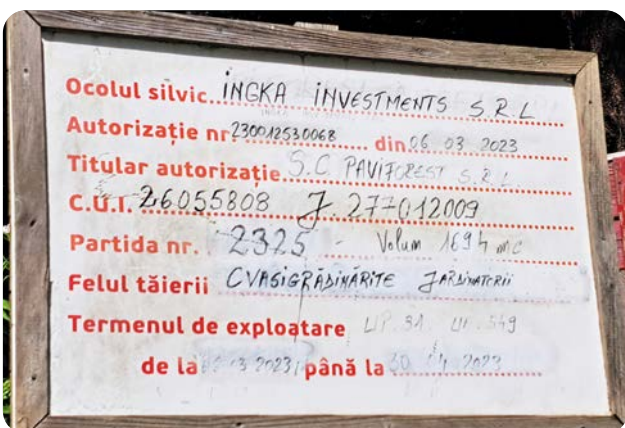 Ocolul silvic İNGKA İNVESTMENTS S.R.L
Autorizație nr. 230012530068 din 06 03 2023
Titular autorizație S.C PAVIFOREST S.R.L
C.U.I. 26055808 J. 277012009
Partida nr. 2325 - Volum 1694 mc
Felul tăierii CVASIGRĂDINĂRITE JARDINATORII
Termenul de exploatare UP. 31 549
de la 3 2023 până la 30 04 2023